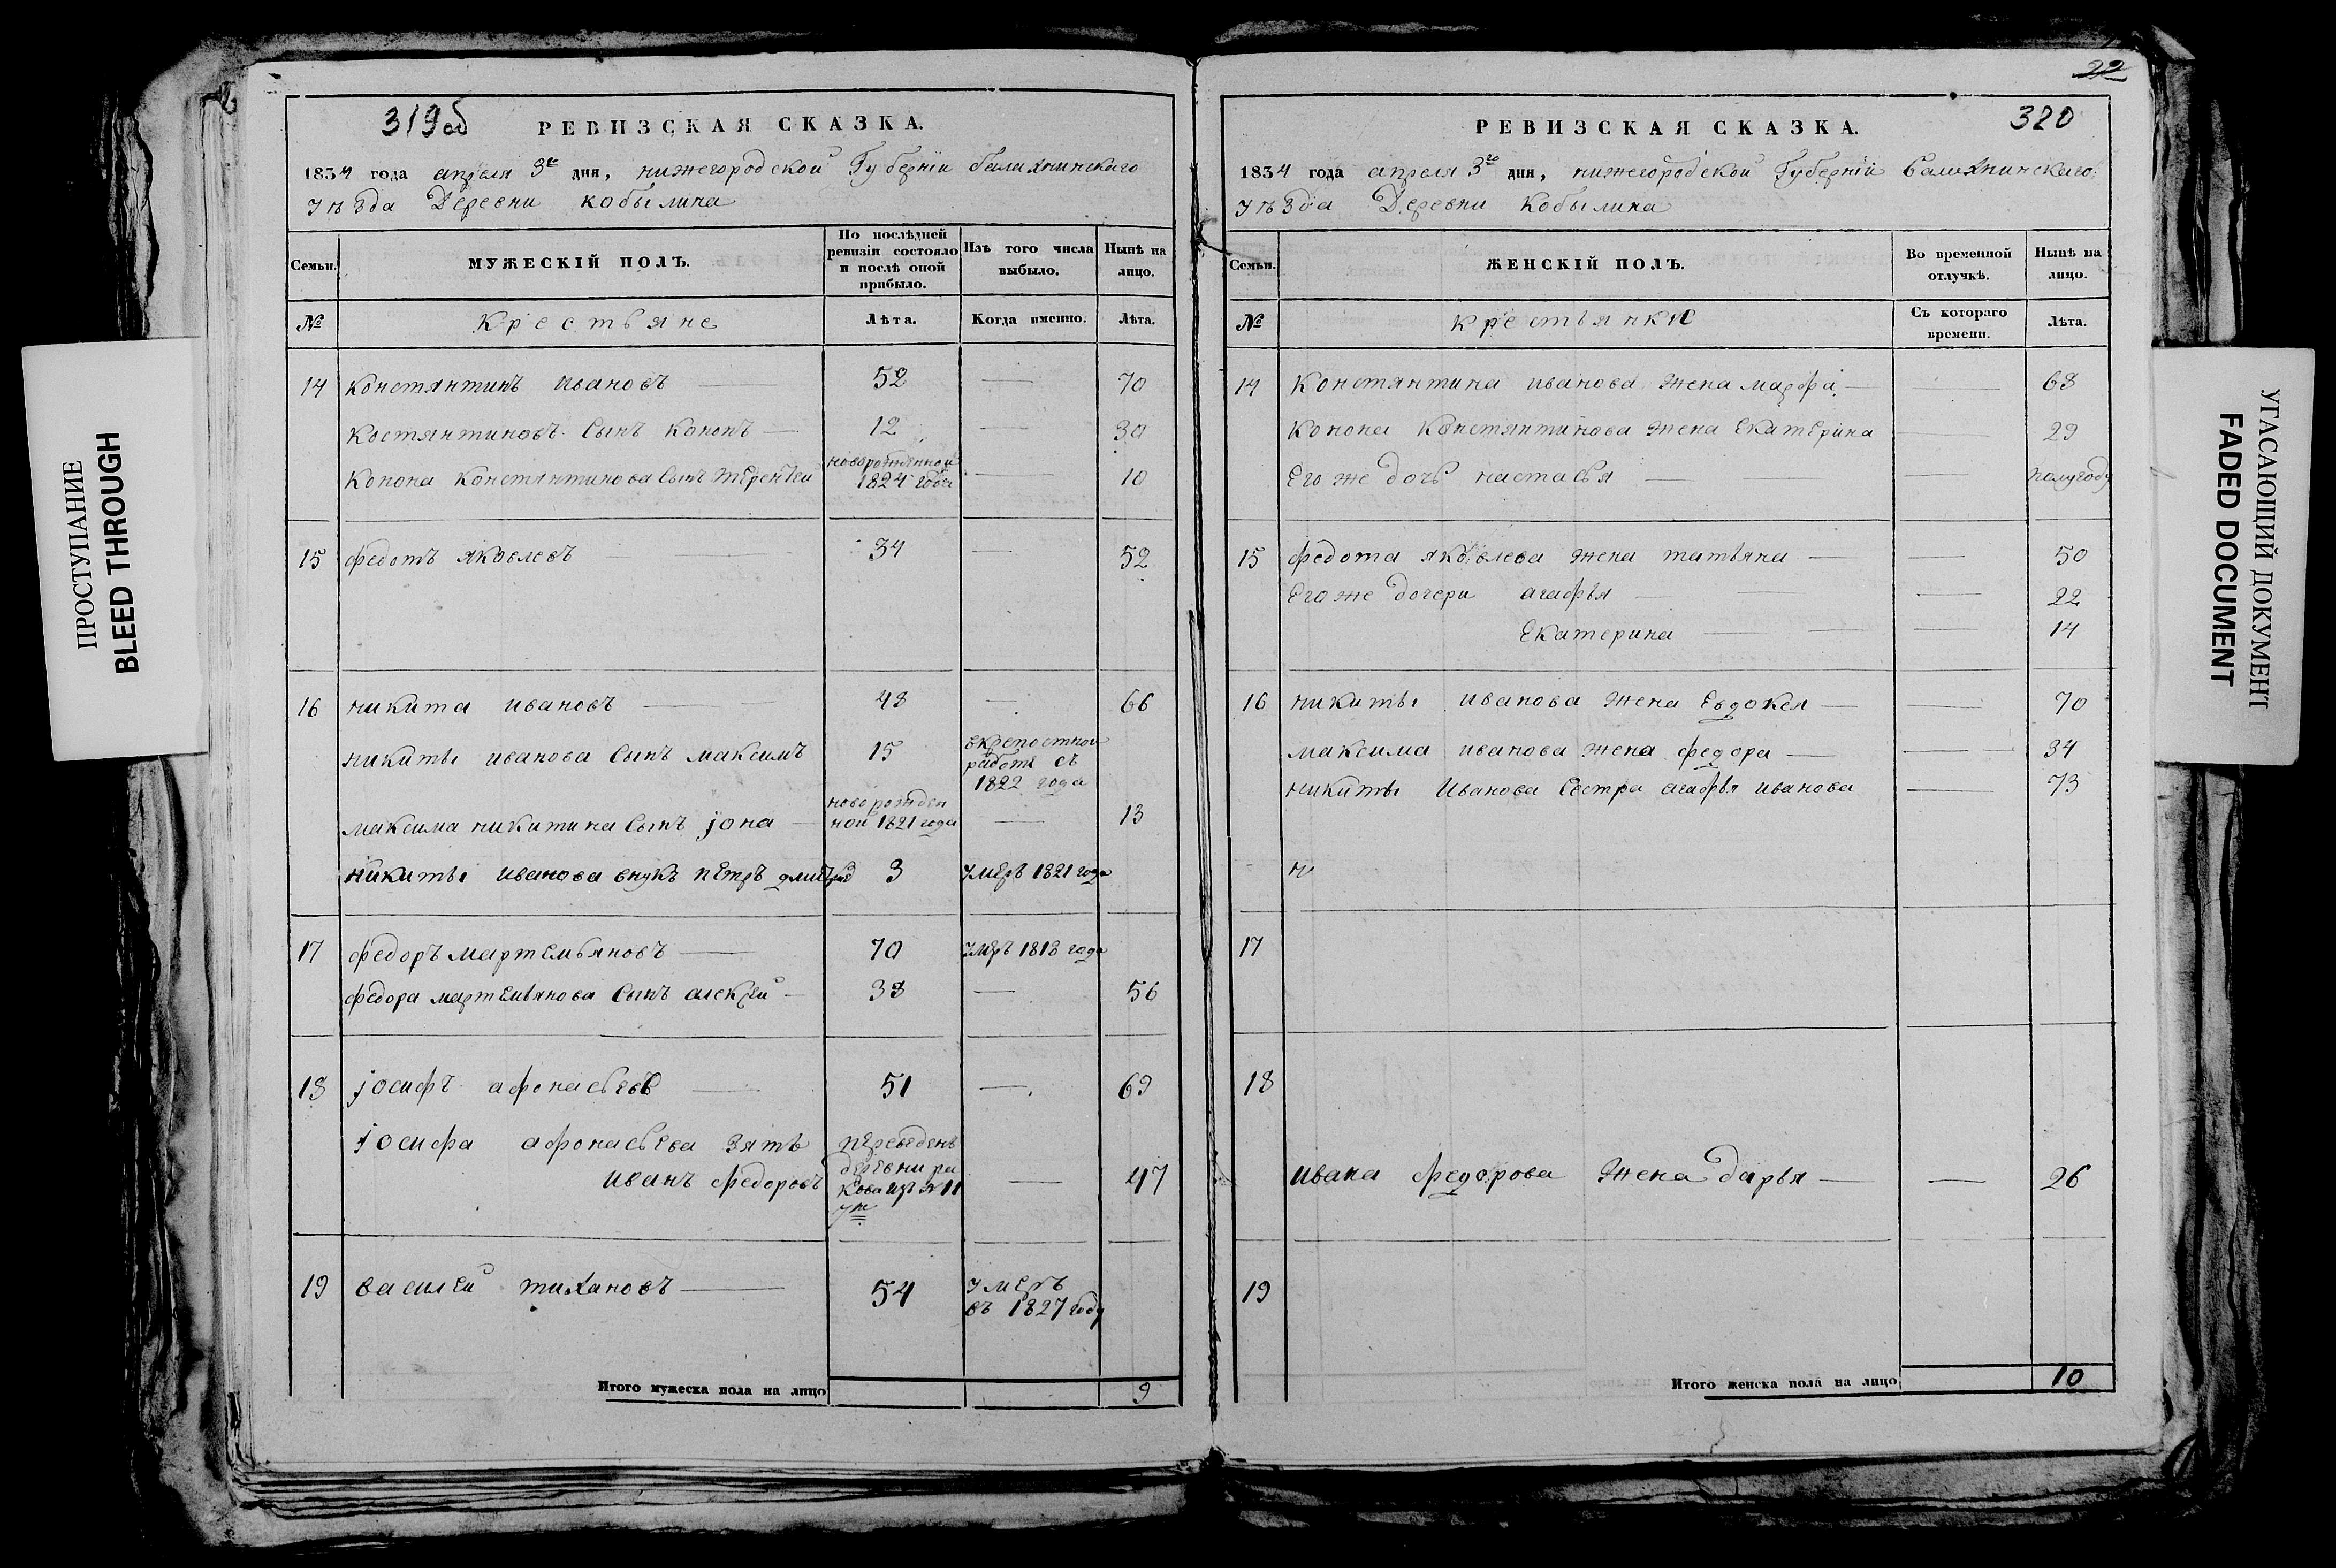 ПРОСТУПАНИЕ
BLEED THROUGH
319об
РЕВИЗСКАЯ СКАЗКА.
1834 года апреля 3го дня, нижегородской Губернїи балахнинскаго
уѣзда Деревни кобылина
Семьи.
МУЖЕСКІЙ ПОЛЪ.
По послѣдней
ревизіи состояло
и послѣ оной
прибыло.
Изъ того числа
выбыло.
Нынѣ на
лицо.
№
крестьяне
Лѣта.
Когда именно.
Лѣта.
14 Констянтинъ ивановъ — 52 — 70
Костянтиновъ сынъ кононъ — 12 — 30
новорожденной
Конона Констянтинова сынъ терентей 1824 года — 10
15 федотъ яковлевъ — 34 — 52
16 никита ивановъ — 48 — 66
никиты иванова сынъ максимъ 15 вкрепостной
работе съ
1822 года
новорожден
максима никитина сынъ јона — ной 1821 года — 13
никиты иванова внукъ петръ 3 умеръ 1821 года
17 федоръ мартемьяновъ — 70 умеръ 1818 года
федора мартемьянова сынъ алексѣй — 38 — 56
18 јосифъ афонасьевъ — 51 — 69
јосифа афонасьева зять переведенъ
деревни ра
иванъ федоровъ кова из № 11 — 47
19 василей тихановъ — 54 умеръ
въ 1827 году
Итого мужеска пола на лицо 9
22
320
РЕВИЗСКАЯ СКАЗКА.
1834 года апреля 3го дня, нижегородской Губернїи балахнинскаго
уѣзда Деревни кобылина
Семьи.
ЖЕНСКІЙ ПОЛЪ.
Во временной
отлучкѣ.
Нынѣ на
лицо.
№
крестьянки
Съ котораго
времени.
Лѣта.
14 Констянтина иванова жена марфа — — 68
Конона Констянтинова жена Екатерина — 29
Его же дочь настасья — — полугоду
15 федота яковлева жена татьяна — — 50
Его же дочери агафья — — 22
Екатерина — — 14
16 никиты иванова жена Евдокея — — 70
максима иванова жена федора — — 34
никиты иванова сестра агафья иванова — 73
н
17
18
ивана федорова жена дарья — — 26
19
Итого женска пола на лицо 10
УГАСАЮЩИЙ ДОКУМЕНТ
FADED DOCUMENT